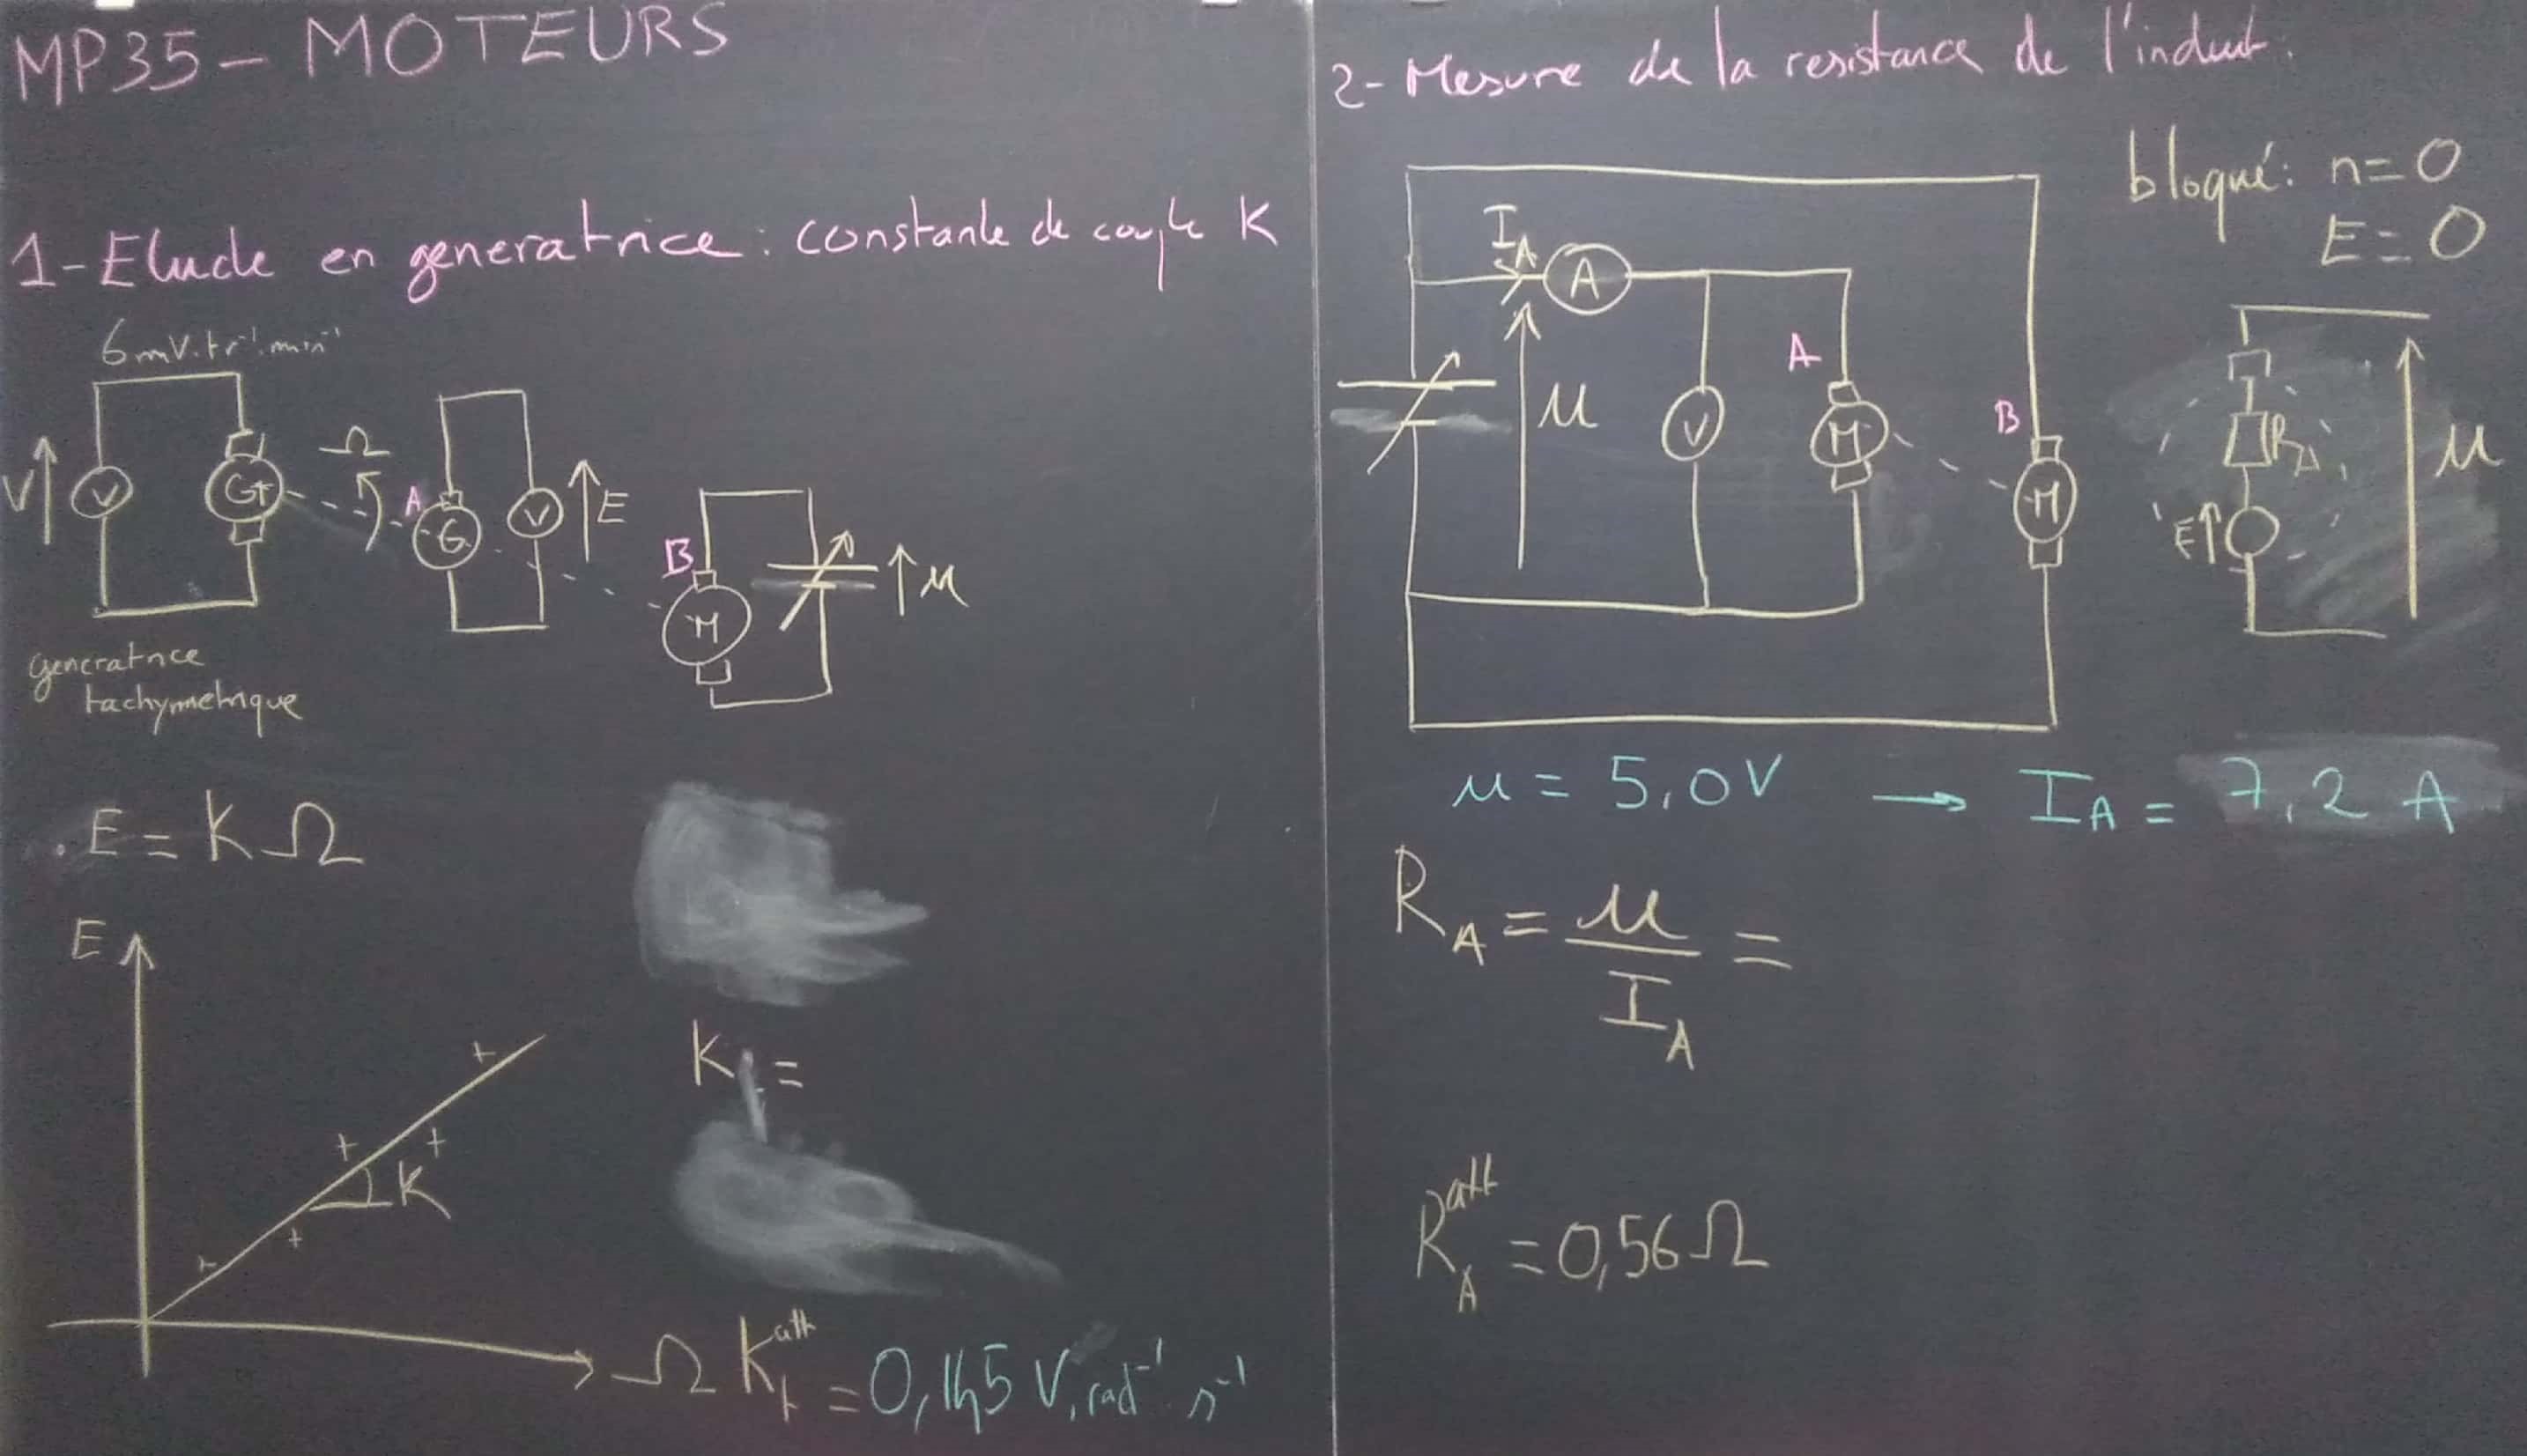 MP35 - MOTEURS
1- Etude en generatrice : constante de couple K
6 mV.tr⁻¹.min⁻¹
V
V
GT
Ω
A
G
V
E
B
M
u
generatrice
tachymetrique
E = K Ω
E
K
Ω
K =
K_t^att = 0,145 V.rad⁻¹.s⁻¹
2- Mesure de la resistance de l'induit.
bloqué: n = 0
E = 0
I_A
A
u
V
A
M
B
M
R_A
E
u
u = 5,0 V → I_A = 7,2 A
R_A = u / I_A =
R_A^att = 0,56 Ω